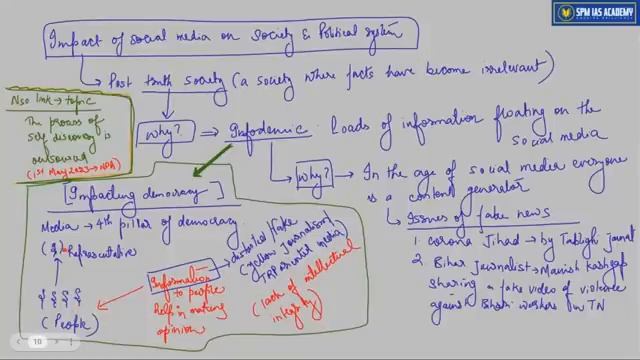 SPM IAS ACADEMY
Impact of social media on Society & Political system
Post truth society (a society where facts have become irrelevant)
Nso link → topic
The process of
self discovery is
outsourced
(1st May 2023 → NDA)
why? ⇒ Infodemic: Loads of information floating on the
social media
why? → In the age of social media everyone
is a content generator
Issues of fake news
1. Corona Jihad → by Tabligh Jamat
2. Bihar Journalist → Manish Kashyap
sharing a fake video of violence
against Bihari workers in TN
[Impacting democracy]
Media → 4th pillar of democracy
Representative
(People)
Information
to people
helps in making
opinion
distorted/fake
(yellow journalism)
TRP oriented media
(lack of intellectual
integrity)
10